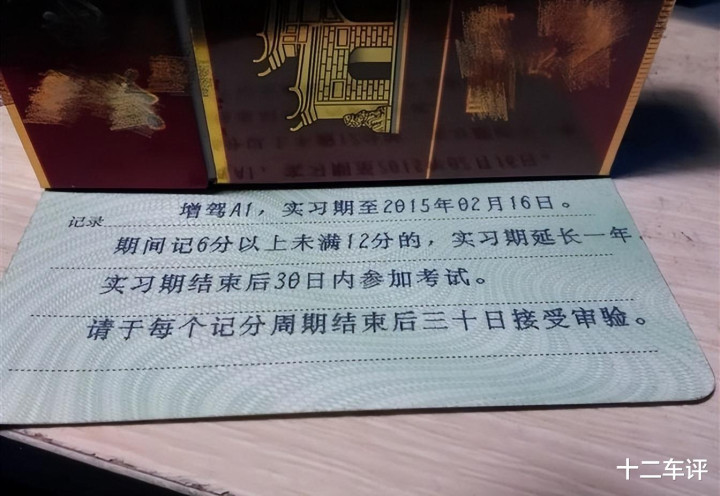 记录 增驾A1，实习期至2015年02月16日。
期间记6分以上未满12分的，实习期延长一年，
实习期结束后30日内参加考试。
请于每个记分周期结束后三十日接受审验。
十二车评